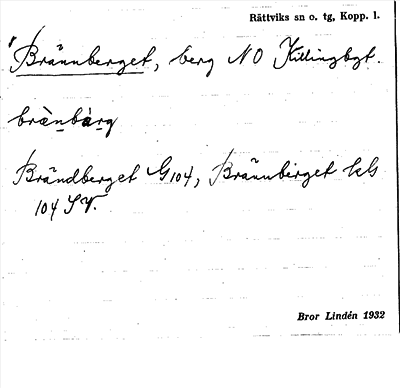 Rättviks sn o. tg, Kopp. l.
Brännberget, berg NO Killingbgt.
brä̀nbàrg
Brändberget G104, Brännberget kls
104 SV.
Bror Lindén 1932